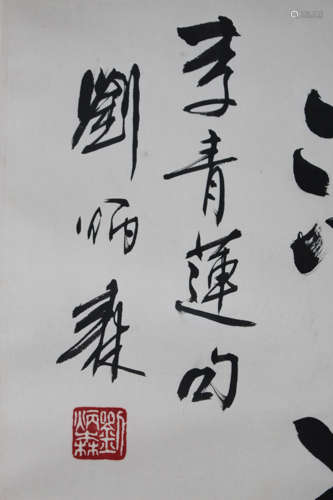 李青蓮句
劉炳森
劉炳森